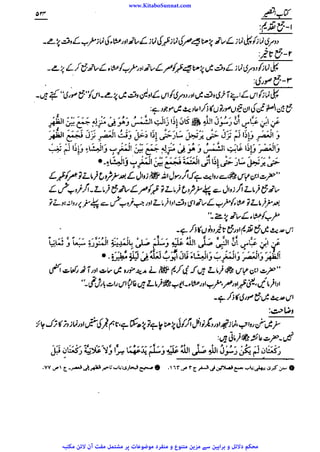 www.KitaboSunnat.com
۵۲۳
کتاب القصیر
۱- جمع تقدیم:
دوسری نماز کو پہلی نماز کے ساتھ پڑھنا جیسے عصر کی نماز ظہر کے ساتھ اور عشاء کی نماز مغرب کے وقت پڑھے۔
۲- جمع تاخیر:
پہلی نماز کو دوسری نماز کے وقت میں پڑھنا جیسے ظہر کو عصر کے ساتھ اور مغرب کو عشاء کے ساتھ جمع کر کے پڑھے۔
۳- جمع صوری:
پہلی نماز کو اس کے آخری وقت میں اور دوسری نماز کو اس کے اولین وقت میں پڑھے۔ اس کو "جمع صوری" کہتے ہیں۔
جمع بین الصلوتین کی ان تینوں صورتوں کا ذکر احادیث میں موجود ہے:
عَنِ ابْنِ عَبَّاسٍ أَنَّ رَسُولَ اللهِ ﷺ كَانَ إِذَا زَالَتِ الشَّمْسُ وَهُوَ فِي مَنْزِلِهِ جَمَعَ بَيْنَ الظُّهْرِ
وَالْعَصْرِ وَإِذَا لَمْ تَزُلْ حَتَّى يَرْتَحِلَ سَارَ حَتَّى إِذَا دَخَلَ وَقْتُ الْعَصْرِ نَزَلَ فَجَمَعَ الظُّهْرَ
وَالْعَصْرَ وَإِذَا غَابَتِ الشَّمْسُ وَهُوَ فِي مَنْزِلِهِ جَمَعَ بَيْنَ الْمَغْرِبِ وَالْعِشَاءِ وَإِذَا لَمْ تَغِبْ
حَتَّى يَرْتَحِلَ سَارَ حَتَّى إِذَا أَتَى الْعَتَمَةَ فَجَمَعَ بَيْنَ الْمَغْرِبِ وَالْعِشَاءِ۔
"حضرت ابن عباس سے روایت ہے کہ اگر رسول اللہ ﷺ زوال کے بعد سفر شروع فرماتے تو عصر کو ظہر کے
ساتھ جمع فرماتے اگر زوال سے پہلے سفر شروع فرماتے تو ظہر کو عصر کے ساتھ جمع فرماتے۔ اگر غروب شمس کے
بعد سفر فرماتے تو عشاء کو مغرب کے ساتھ اسی وقت ادا فرماتے اور جب غروب شمس سے پہلے سفر پر روانہ ہوتے تو
مغرب کو عشاء کے ساتھ پڑھتے۔"
اس حدیث میں جمع تقدیم اور جمع تاخیر دونوں کا ذکر ہے۔
عَنِ ابْنِ عَبَّاسٍ أَنَّ النَّبِيَّ صَلَّى اللهُ عَلَيْهِ وَسَلَّمَ صَلَّى بِالْمَدِينَةِ الْمُنَوَّرَةِ سَبْعاً وَ ثَمَانِياً
الظُّهْرَ وَالْعَصْرَ وَالْمَغْرِبَ وَالْعِشَاءَ فَقَالَ أَيُّوبُ لَعَلَّهُ فِي لَيْلَةٍ مَطِيرَةٍ۔
"حضرت ابن عباس فرماتے ہیں کہ نبی کریم ﷺ نے مدینہ منورہ میں سات اور آٹھ رکعات اکٹھی
ادا فرمائیں، یعنی ظہر اور عصر، مغرب اور عشاء۔ ایوب فرماتے ہیں غالباً اس رات بارش تھی۔"
اس حدیث میں جمع صوری کا ذکر ہے۔
وضاحت:
سفر میں سنن رواتب، نماز تہجد اور دیگر نوافل اگر کوئی پڑھنا چاہے تو پڑھ سکتا ہے، تاہم فجر کی سنتیں اور نماز وتر کا ترک جائز
نہیں۔ حضرت عائشہ فرماتی ہیں:
رَكْعَتَانِ لَمْ يَكُنْ رَسُولُ اللهِ صَلَّى اللهُ عَلَيْهِ وَسَلَّمَ يَدَعُهُمَا سِرًّا وَلَا عَلَانِيَةً رَكْعَتَانِ قَبْلَ
سنن کبری بیہقی، باب جمع الصلاتین فی السفر ج ۳ ص ۱۶۳۔ صحیح البخاری، باب تاخیر الظہر الی العصر، ج ۱ ص ۷۷۔
محکم دلائل و براہین سے مزین متنوع و منفرد موضوعات پر مشتمل مفت آن لائن مکتبہ